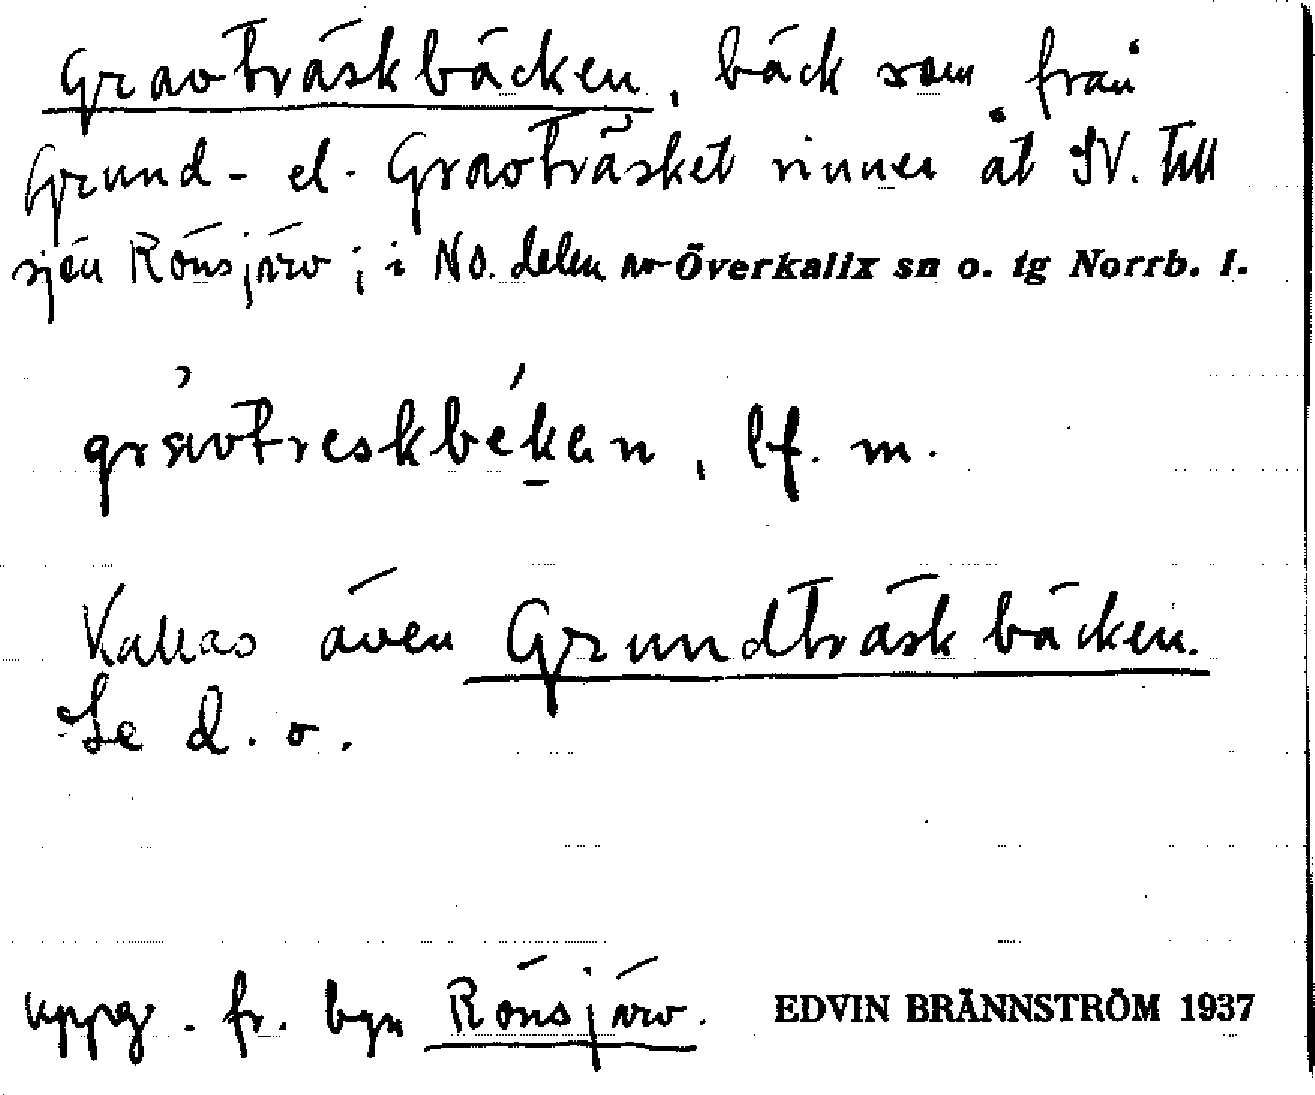 Gravträskbäcken, bäck som från
Grund- el. Gravträsket rinner åt SV. till
sjön Rönsjärv; i NO. delen av Överkalix sn o. tg Norrb. l.
lf. m.
Kallas även Grundträskbäcken.
Se d. o.
uppg. fr. byn Rönsjärv. EDVIN BRÄNNSTRÖM 1937